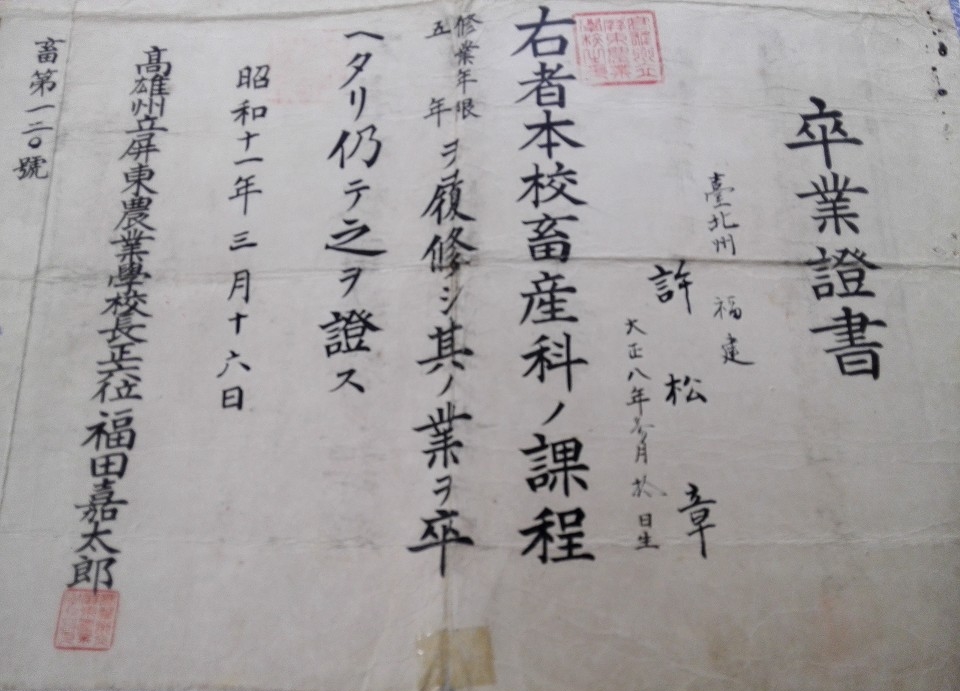 卒業證書
臺北州 福建
許松章
大正八年 月 日生
右者本校畜産科ノ課程
修業年限
五年
ヲ履修シ其ノ業ヲ卒
ヘタリ仍テ之ヲ證ス
昭和十一年三月十六日
高雄州立屏東農業學校長正六位 福田嘉太郎
畜第一二〇號